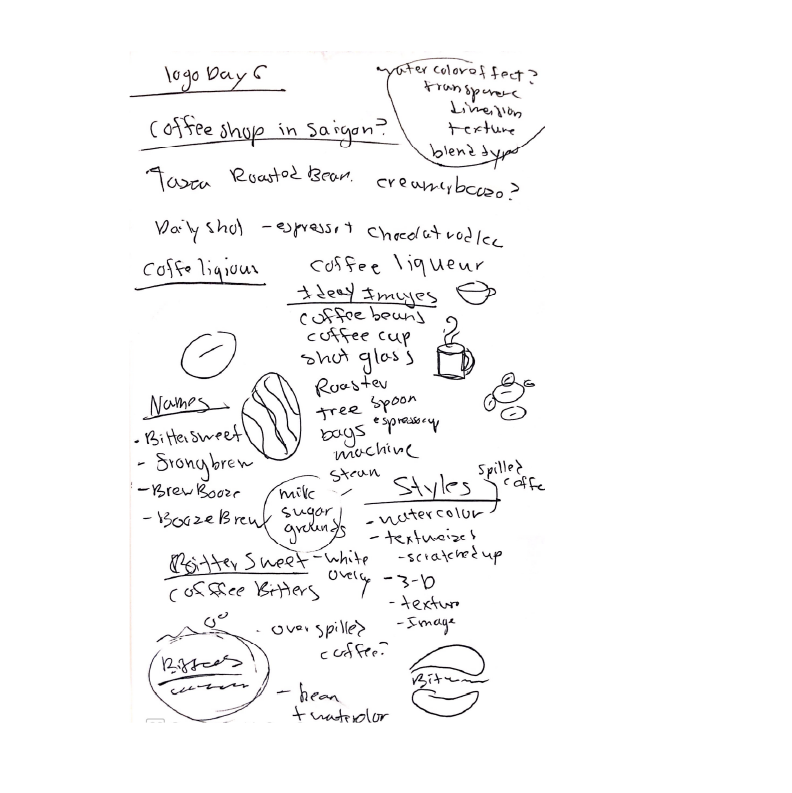 logo Day 6
water color effect?
transparent
dimension
texture
blend type
Coffee shop in Saigon?
Roasted Bean.
Daily shot - espresso + chocolat vodka
Coffeligious
Coffee liqueur
Ideas Images
coffee beans
coffee cup
shot glass
Roaster
tree spoon
bags espresso cup
machine
steam
milk
sugar
grounds
Names
- Bittersweet
- Strongbrew
- BrewBooze
- BoozeBrew
Styles
spilled
coffe
- watercolor
- texturized
- scratched up
- 3-D
- texture
- Image
BitterSweet - white
overlay
Cofffee Bitters
- over spilled
coffee?
Bitters
- bean
+ watercolor